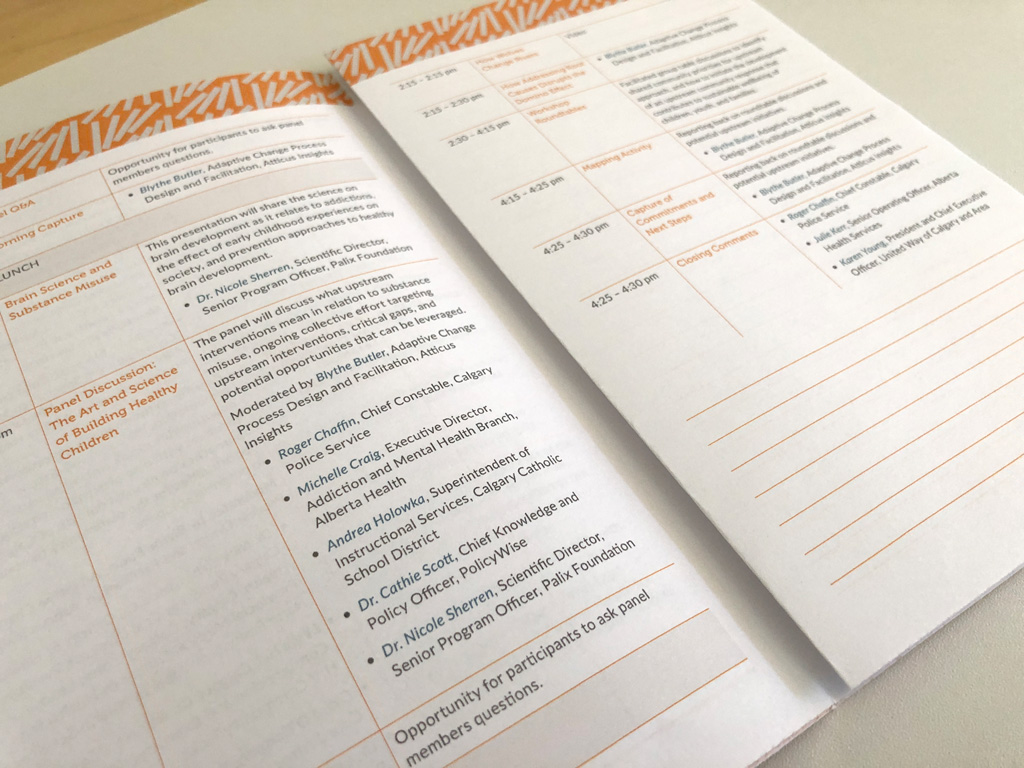 el Q&A
Opportunity for participants to ask panel
members questions.
orning Capture
• Blythe Butler, Adaptive Change Process
Design and Facilitation, Atticus Insights
LUNCH
Brain Science and
Substance Misuse
This presentation will share the science on
brain development as it relates to addictions,
the effect of early childhood experiences on
society, and prevention approaches to healthy
brain development.
• Dr. Nicole Sherren, Scientific Director,
Senior Program Officer, Palix Foundation
pm
Panel Discussion:
The Art and Science
of Building Healthy
Children
The panel will discuss what upstream
interventions mean in relation to substance
misuse, ongoing collective effort targeting
upstream interventions, critical gaps, and
potential opportunities that can be leveraged.
Moderated by Blythe Butler, Adaptive Change
Process Design and Facilitation, Atticus
Insights
• Roger Chaffin, Chief Constable, Calgary
Police Service
• Michelle Craig, Executive Director,
Addiction and Mental Health Branch,
Alberta Health
• Andrea Holowka, Superintendent of
Instructional Services, Calgary Catholic
School District
• Dr. Cathie Scott, Chief Knowledge and
Policy Officer, PolicyWise
• Dr. Nicole Sherren, Scientific Director,
Senior Program Officer, Palix Foundation
Opportunity for participants to ask panel
members questions.
2:15 – 2:15 pm
How Wolves
Change Rivers
Video
2:15 – 2:30 pm
How Addressing Root
Causes Disrupts the
Domino Effect
• Blythe Butler, Adaptive Change Process
Design and Facilitation, Atticus Insights
2:30 – 4:15 pm
Workshop
Roundtables
Facilitated group table discussions to identify
shared community priorities for upstream
of upstream
contributes to
children, youth, and families.
Mapping Activity
Reporting back on roundtable discussions and
potential upstream initiatives.
• Blythe Butler, Adaptive Change Process
Design and Facilitation, Atticus Insights
4:15 – 4:25 pm
Capture of
Commitments and
Next Steps
Reporting back on roundtable discussions and
potential upstream initiatives.
• Blythe Butler, Adaptive Change Process
Design and Facilitation, Atticus Insights
4:25 – 4:30 pm
Closing Comments
• Roger Chaffin, Chief Constable, Calgary
Police Service
• Julie Kerr, Senior Operating Officer, Alberta
Health Services
• Karen Young, President and Chief Executive
Officer, United Way of Calgary and Area
4:25 – 4:30 pm